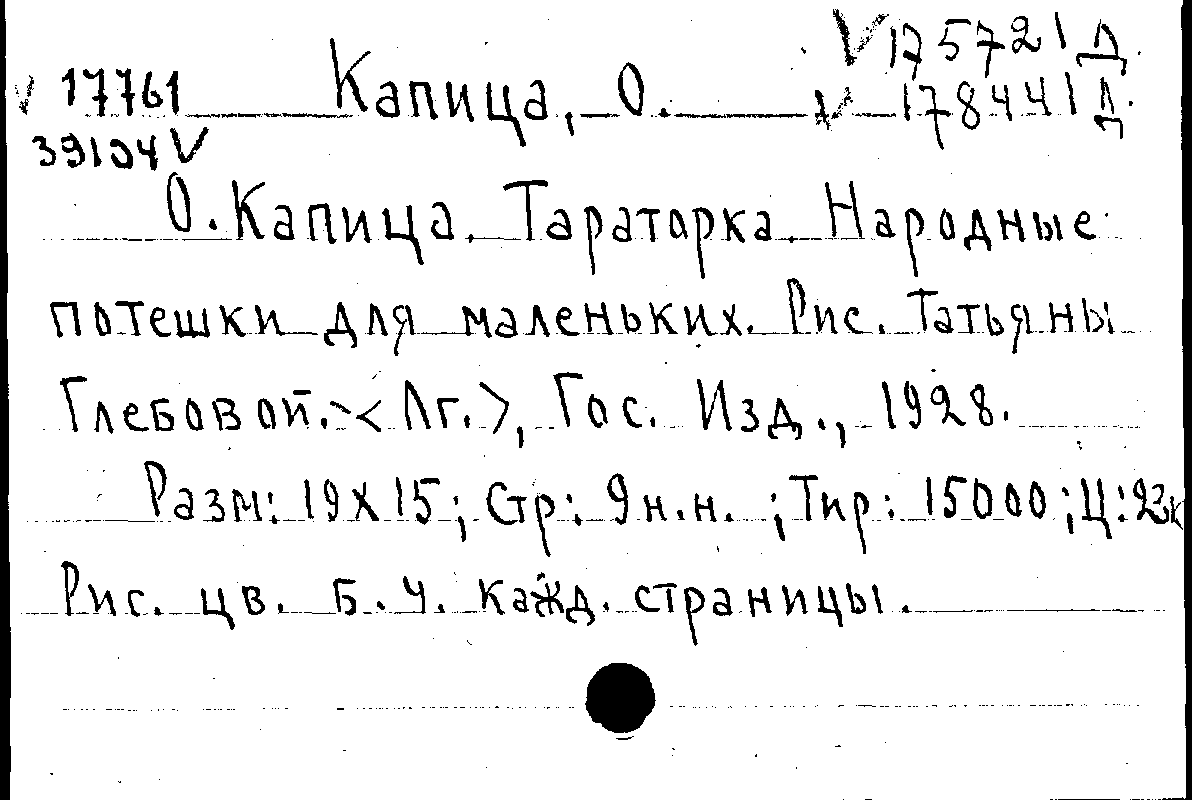 V 175721 Д.
V 17761 Капица, О. V 178441 Д.
39104 V
О. Капица. Тараторка. Народные
потешки для маленьких. Рис. Татьяны
Глебовой. - <Лг.>, Гос. Изд., 1928.
Разм: 19х15; Стр: 9 н.н. ; Тир: 15000; Ц: 23к
Рис. цв. б. ч. кажд. страницы.